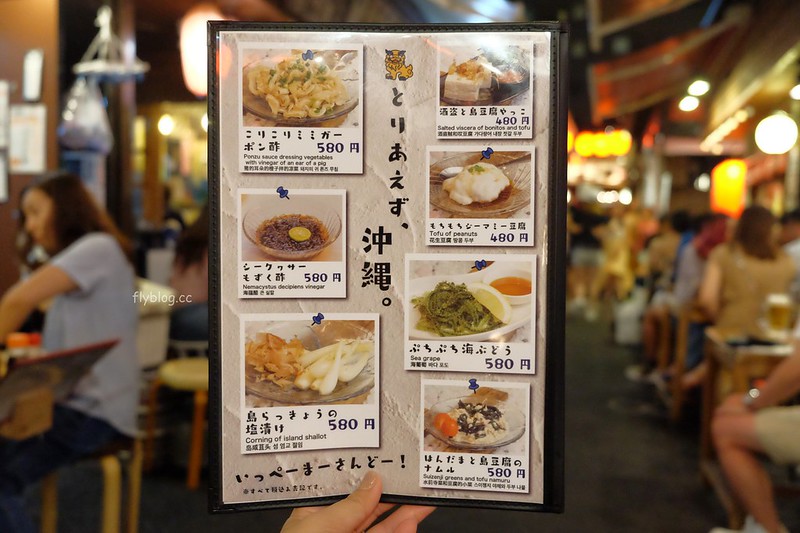 とりあえず、沖縄。
こりこりミミガー
ポン酢 580円
Ponzu sauce dressing vegetables
with vinegar of an ear of a pig
シークヮサー
もずく酢 580円
Nemacystus decipiens vinegar
島らっきょうの
塩漬け 580円
Corning of island shallot
酒盗と島豆腐やっこ
480円
Salted viscera of bonitos and tofu
もちもちジーマミー豆腐
Tofu of peanuts
花生豆腐 땅콩 두부
480円
ぷちぷち海ぶどう
Sea grape
海葡萄 바다 포도
580円
はんだまと島豆腐の
ナムル 580円
Suizenji greens and tofu namuru
いっぺーまーさんどー!
※すべて税込み表記です。
flyblog.cc